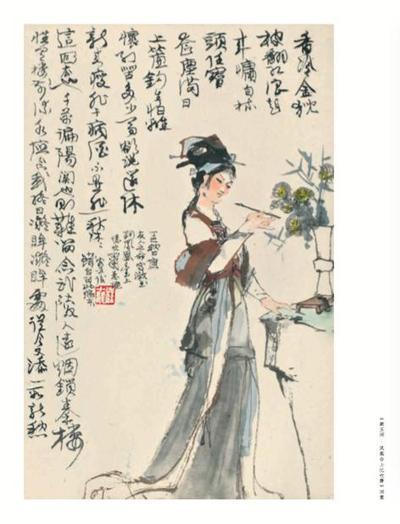 香冷金猊
被翻紅浪起
來慵自梳
頭任寶
奩塵滿日
上簾鉤生怕離
懷別苦多少事欲說還休
新來瘦非干病酒不是悲秋
這回去也千萬遍陽關也則難留念武陵人遠烟鎖秦樓
惟有樓前流水應念我終日凝眸凝眸處從今又添一段新愁
凤凰台上忆吹箫》词意